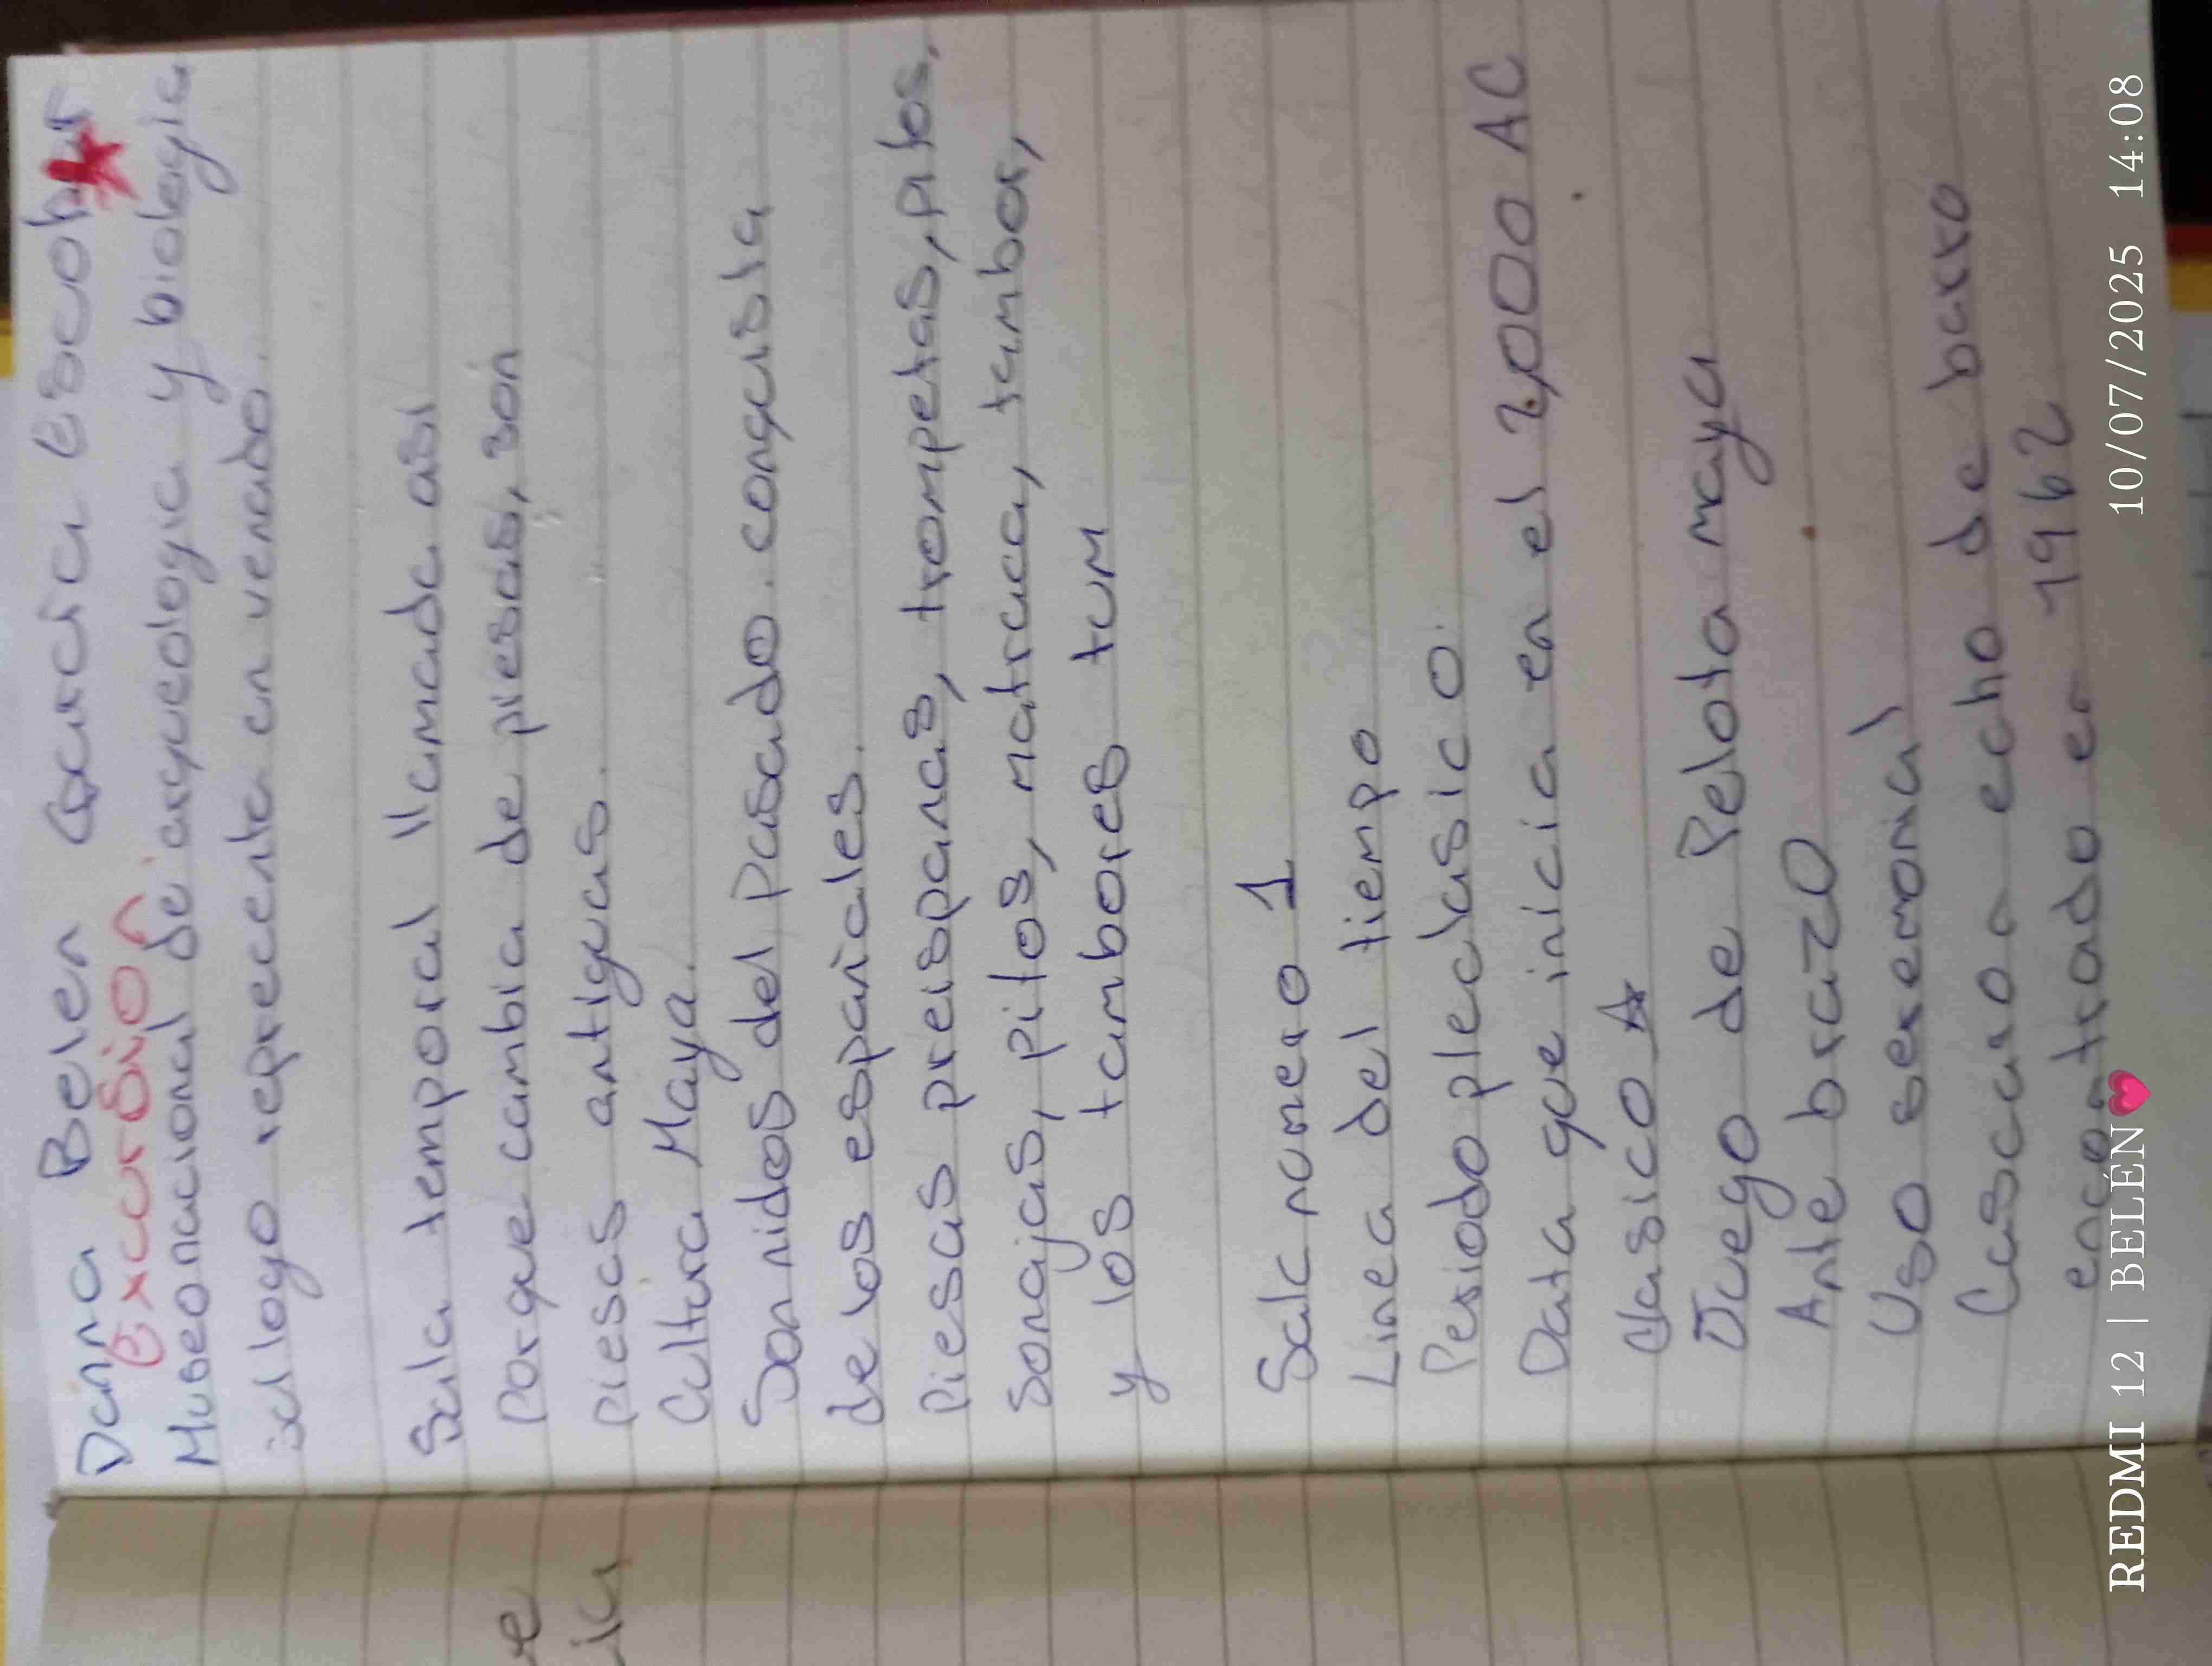 Danna Belen Garcia Escobar
Excursion
Museo nacional de arqueologia y biologia
su logo reprecenta un venado.
Sala temporal llamada asi
Porque cambia de piesas, son
piesas antiguas.
Cultura Maya.
Son nidos del pasado. conquista
de los españoles.
Piesas preispanas, trompetas, pitos,
sonajas, pitos, matraca, tambor,
y los tambores tum
Sala numero 1
Linea del tiempo
Periodo pleclasico.
Data que inicia en el 2,000 AC
Clasico
Juego de Pelota maya
Ante brazo
Uso seremonial
Cascaron echo de barro
encontrado en 1962
ve
ia
REDMI 12 | BELÉN💗 10/07/2025 14:08